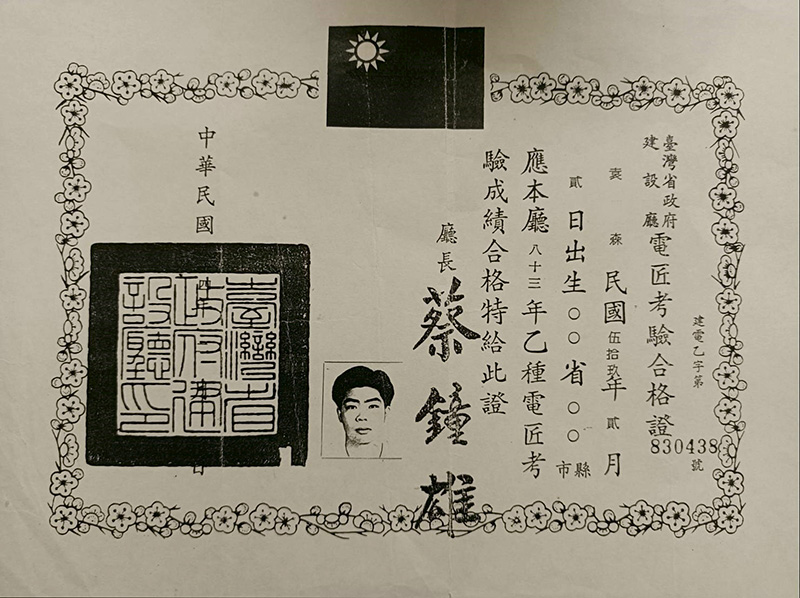 建電乙字第830438號
臺灣省政府
建設廳
電匠考驗合格證
袁森 民國伍拾玖年貳月
貳日出生○○省○○縣市
應本廳八十三年乙種電匠考
驗成績合格特給此證
廳長 蔡鐘雄
中華民國 日
臺灣省
政府建
設廳印